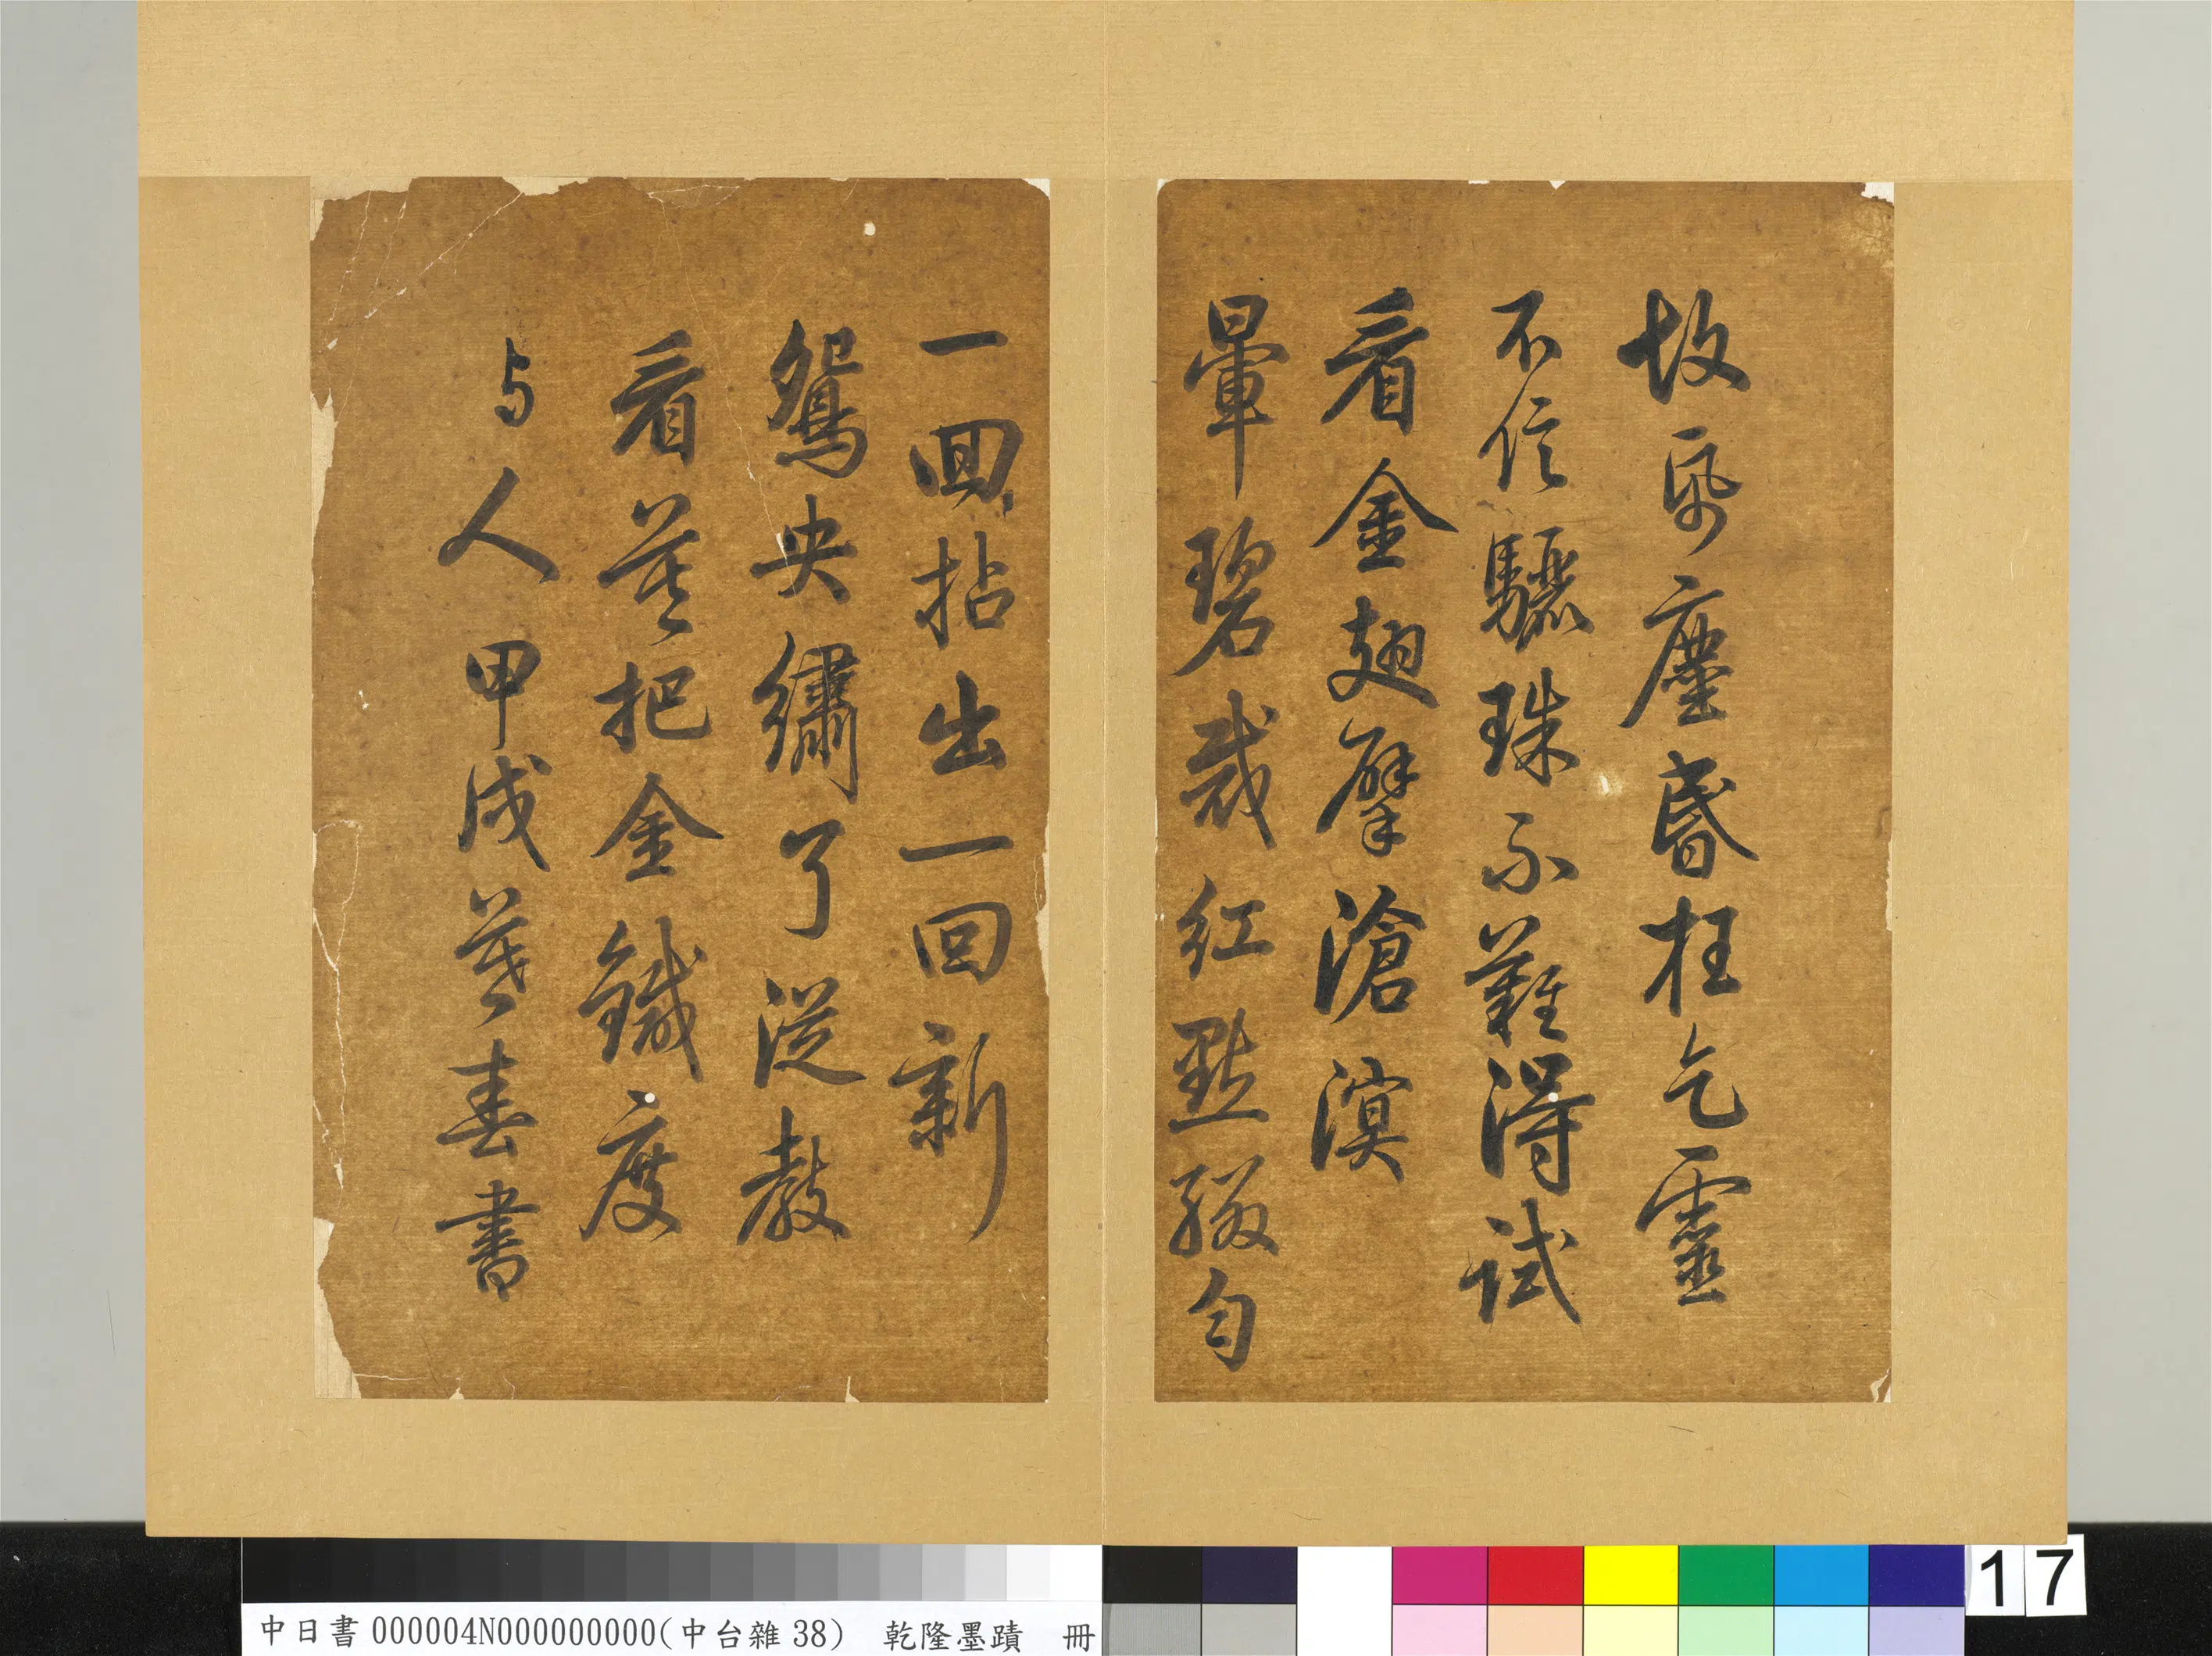 故帋塵昬枉乞靈
不信驪珠不難得試
看金翅擘滄溟
暈碧裁紅點綴勻
一回拈出一回新
鴛央繡了從教
看莫把金鍼度
与人 甲戌莫春書
17
中日書000004N000000000(中台雜38) 乾隆墨蹟 冊